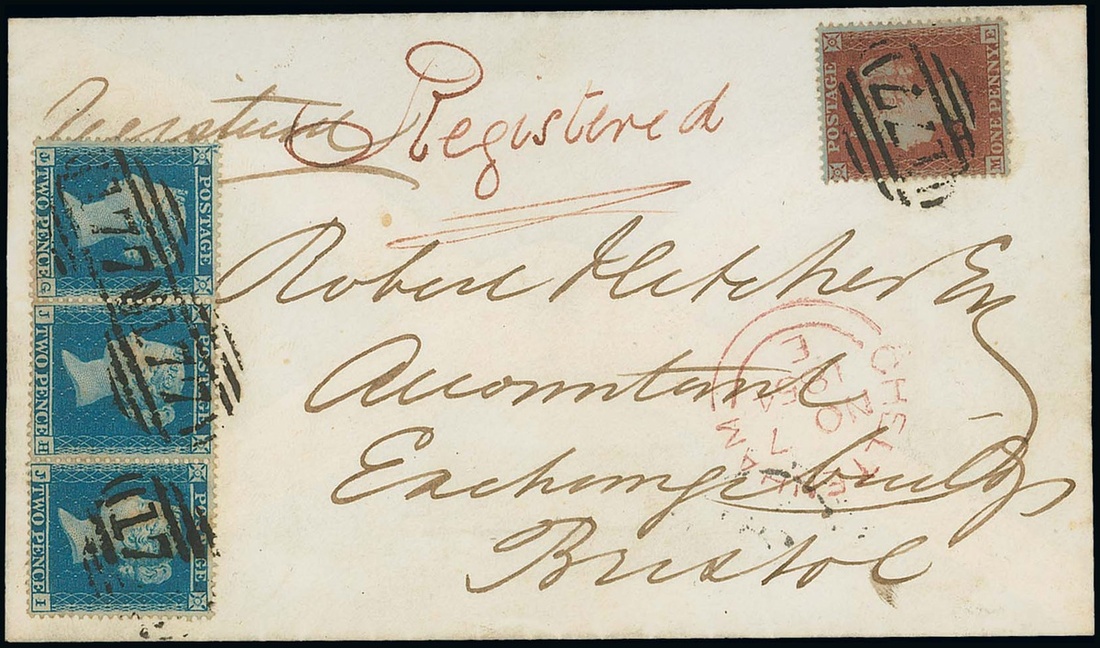 Registered
Registered
POSTAGE
ONE PENNY
M E
177
POSTAGE
J TWO PENCE G
177
POSTAGE
J TWO PENCE H
177
POSTAGE
J TWO PENCE I
177
Robert Fletcher Esq
Accountant
Exchange buildgs
Bristol
CHELTENHAM
NO
7